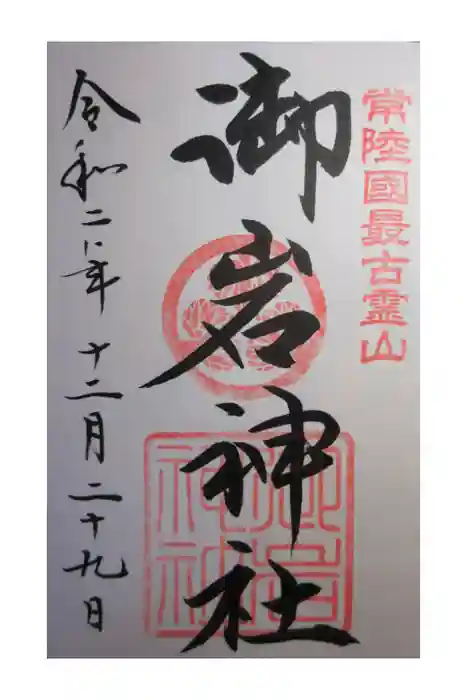 常陸國最古霊山
御岩神社
御岩神社
令和二年十二月二十九日